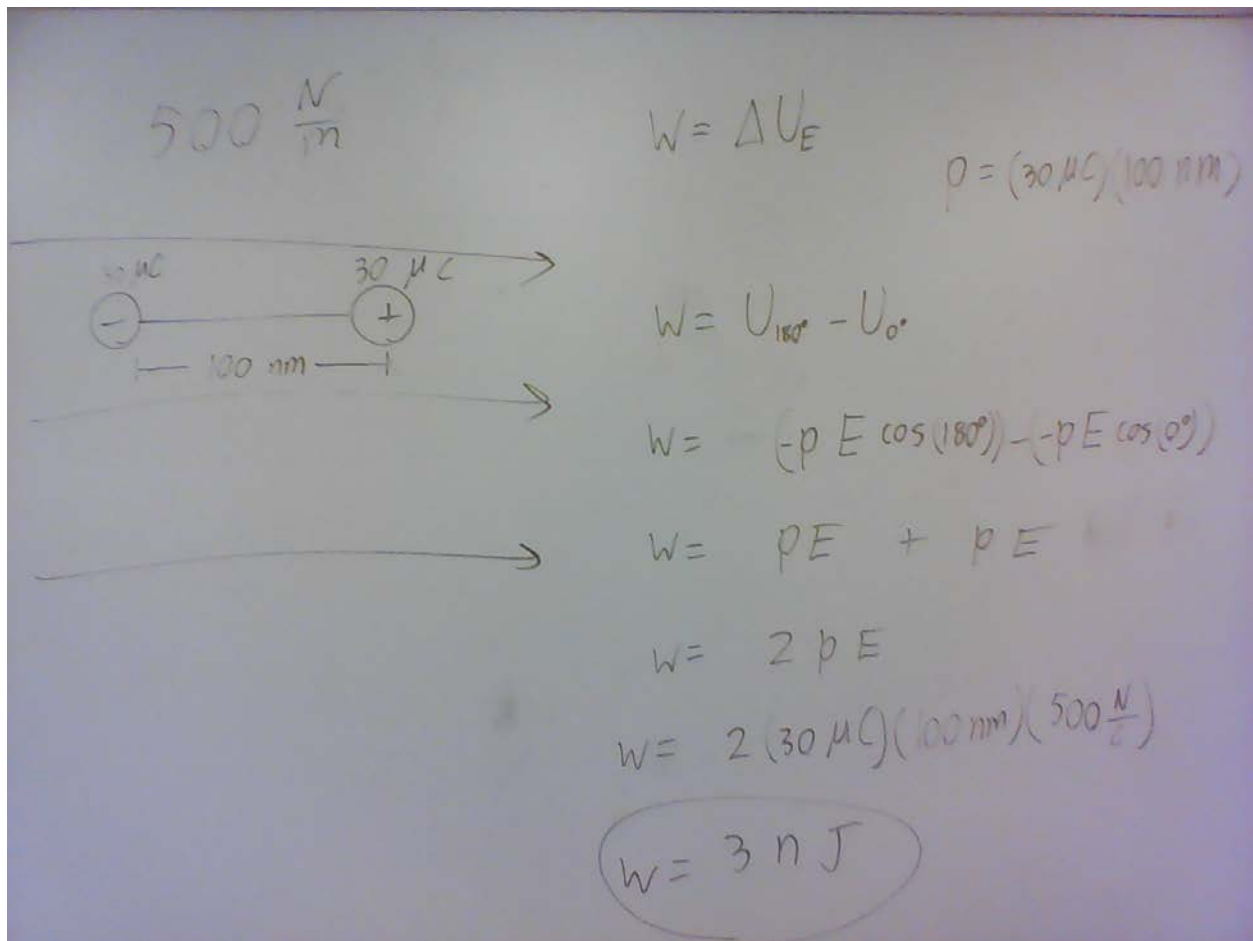 500 N/m
μC 30 μC
- +
100 nm
W = ΔU_E
p = (30 μC)(100 nm)
W = U_180° - U_0°
W = (-p E cos(180°)) - (-p E cos(0°))
W = pE + pE
W = 2 p E
W = 2 (30 μC)(100 nm)(500 N/C)
W = 3 n J